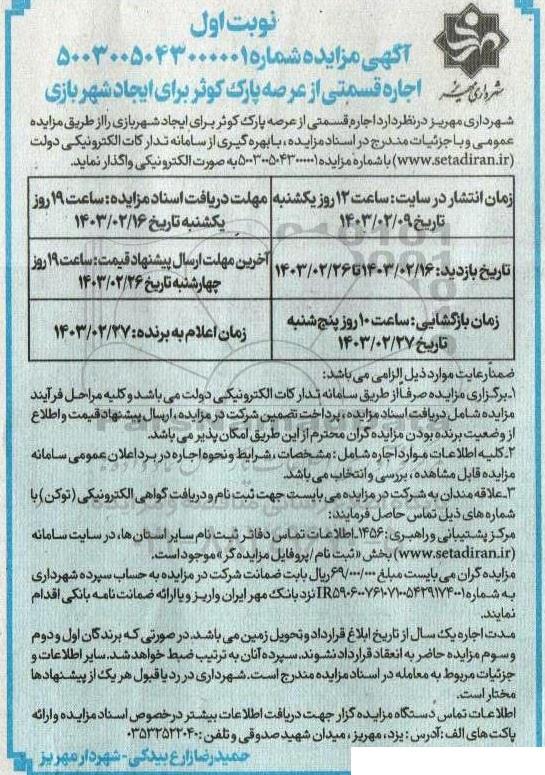 نوبت اول
آگهی مزایده شماره ۵۰۰۳۰۰۵۰۴۳۰۰۰۰۰۱
اجاره قسمتی از عرصه پارک کوثر برای ایجاد شهربازی
شهرداری مهریز
شهرداری مهریز در نظر دارد اجاره قسمتی از عرصه پارک کوثر برای ایجاد شهربازی را از طریق مزایده
عمومی و با جزئیات مندرج در اسناد مزایده، با بهره گیری از سامانه تدارکات الکترونیکی دولت
(www.setadiran.ir) با شماره مزایده ۵۰۰۳۰۰۵۰۴۳۰۰۰۰۰۱ به صورت الکترونیکی واگذار نماید.
زمان انتشار در سایت: ساعت ۱۲ روز یکشنبه
تاریخ ۱۴۰۳/۰۲/۰۹
مهلت دریافت اسناد مزایده: ساعت ۱۹ روز
یکشنبه تاریخ ۱۴۰۳/۰۲/۱۶
تاریخ بازدید: ۱۴۰۳/۰۲/۱۶ تا ۱۴۰۳/۰۲/۲۶
آخرین مهلت ارسال پیشنهاد قیمت: ساعت ۱۹ روز
چهارشنبه تاریخ ۱۴۰۳/۰۲/۲۶
زمان بازگشایی: ساعت ۱۰ روز پنج شنبه
تاریخ ۱۴۰۳/۰۲/۲۷
زمان اعلام به برنده: ۱۴۰۳/۰۲/۲۷
ضمناً رعایت موارد ذیل الزامی می باشد:
۱-برگزاری مزایده صرفاً از طریق سامانه تدارکات الکترونیکی دولت می باشد و کلیه مراحل فرآیند
مزایده شامل دریافت اسناد مزایده، پرداخت تضمین شرکت در مزایده، ارسال پیشنهاد قیمت و اطلاع
از وضعیت برنده بودن مزایده گران محترم از این طریق امکان پذیر می باشد.
۲-کلیه اطلاعات موارد اجاره شامل: مشخصات، شرایط و نحوه اجاره در برد اعلان عمومی سامانه
مزایده قابل مشاهده، بررسی و انتخاب می باشد.
۳-علاقه مندان به شرکت در مزایده می بایست جهت ثبت نام و دریافت گواهی الکترونیکی (توکن) با
شماره های ذیل تماس حاصل فرمایند:
مرکز پشتیبانی و راهبری: ۱۴۵۶-اطلاعات تماس دفاتر ثبت نام سایر استان ها، در سایت سامانه
(www.setadiran.ir) بخش «ثبت نام /پروفایل مزایده گر» موجود است.
مزایده گران می بایست مبلغ ۶۹/۰۰۰/۰۰۰ ریال بابت ضمانت شرکت در مزایده به حساب سپرده شهرداری
به شماره IR۵۹۰۶۰۰۷۶۱۰۷۱۰۰۵۴۲۹۱۷۴۰۰۱ نزد بانک مهر ایران واریز و یا ارائه ضمانت نامه بانکی اقدام
نمایند.
مدت اجاره یک سال از تاریخ ابلاغ قرارداد و تحویل زمین می باشد. در صورتی که برندگان اول و دوم
و سوم مزایده حاضر به انعقاد قرارداد نشوند. سپرده آنان به ترتیب ضبط خواهد شد. سایر اطلاعات و
جزئیات مربوط به معامله در اسناد مزایده مندرج است. شهرداری در رد یا قبول هر یک از پیشنهادها
مختار است.
اطلاعات تماس دستگاه مزایده گزار جهت دریافت اطلاعات بیشتر در خصوص اسناد مزایده و ارائه
پاکت های الف: آدرس: یزد، مهریز، میدان شهید صدوقی و تلفن: ۰۳۵۳۲۵۲۲۰۴۰
حمیدرضا زارع بیدکی - شهردار مهریز